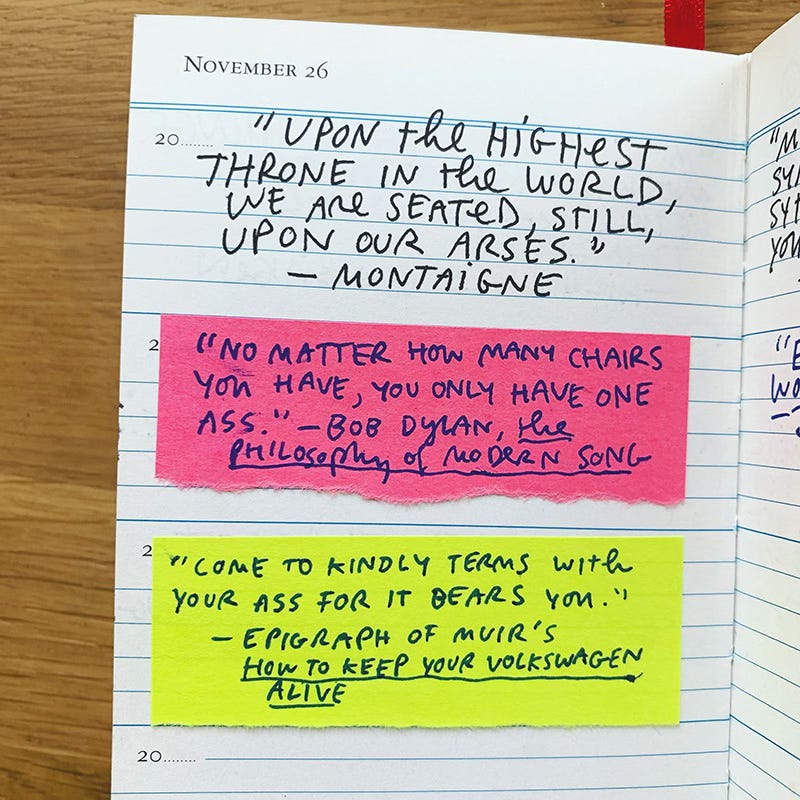 NOVEMBER 26
20........
"UPON the HIGHEST
THRONE IN the WORLD,
WE ARE SEATED, STILL,
UPON OUR ARSES."
— MONTAIGNE
2
"NO MATTER HOW MANY CHAIRS
YOU HAVE, YOU ONLY HAVE ONE
ASS." — BOB DYLAN, the
PHILOSOPHY of MODERN SONG
2
"COME TO KINDLY TERMS with
YOUR ASS FOR IT BEARS YOU."
— EPIGRAPH OF MUIR'S
HOW TO KEEP YOUR VOLKSWAGEN
ALIVE
20........